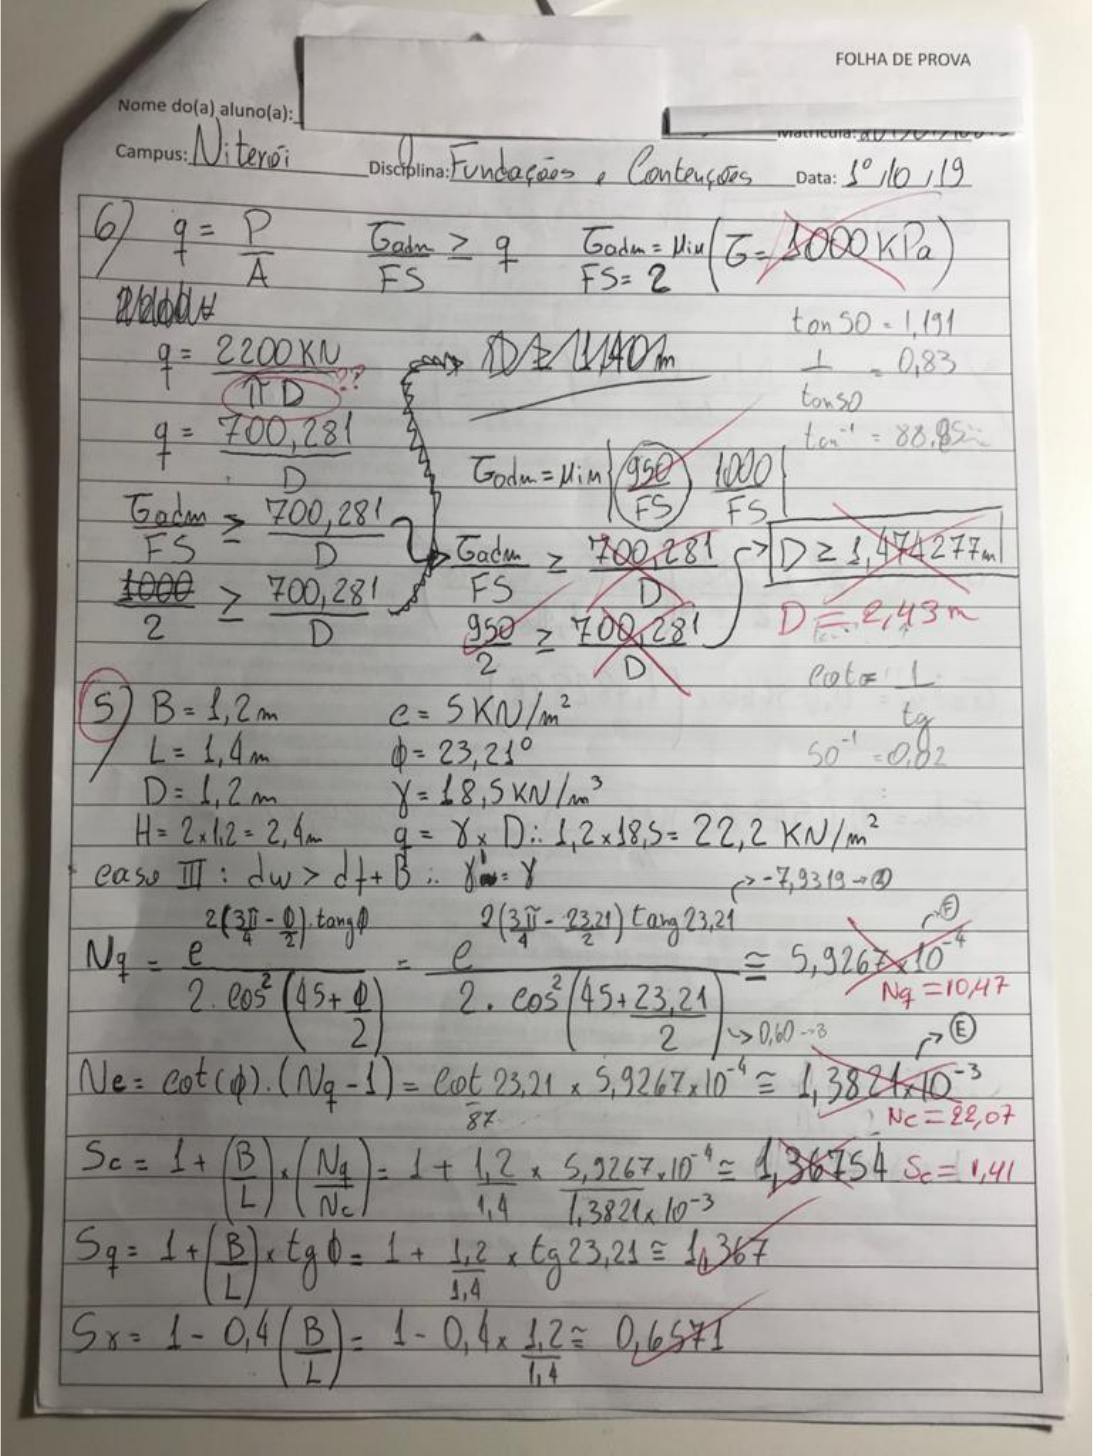 FOLHA DE PROVA
Nome do(a) aluno(a):
Matrícula:
Campus: Niterói Disciplina: Fundações e Contenções Data: 1º/10/19
6) q = P/A σadm/FS ≥ q σadm = Min (σ = 1000 KPa)
FS = 2
tan 50 = 1,191
q = 2200 KN / π D ?? D ≥ 1,40 m
1/tan 50 = 0,83
q = 700,281 / D
σadm = Min { 950/FS 1000/FS }
σadm/FS ≥ 700,281/D σadm/FS ≥ 700,281/D → D ≥ 1,474277 m
1000/2 ≥ 700,281/D 950/2 ≥ 700,281/D D = 2,43 m
cot = 1/tg
50⁻¹ = 0,02
5) B = 1,2 m c = 5 KN/m²
L = 1,4 m ϕ = 23,21º
D = 1,2 m γ = 18,5 KN/m³
H = 2 x 1,2 = 2,4 m q = γ x D ∴ 1,2 x 18,5 = 22,2 KN/m²
caso III : dw > df + B ∴ γ' = γ → -7,9319 → 2
Nq = e^(2(3π/4 - ϕ/2).tangϕ) / 2.cos²(45 + ϕ/2) = e^(2(3π/4 - 23,21/2) tang 23,21) / 2.cos²(45 + 23,21/2) ≅ 5,9267 x 10⁻⁴ → F
Nq = 10,47
→ 0,60 → 3
Nc = cot(ϕ).(Nq - 1) = cot 23,21 x 5,9267 x 10⁻⁴ ≅ 1,3821 x 10⁻³ → E
87 Nc = 22,07
Sc = 1 + (B/L) x (Nq/Nc) = 1 + 1,2/1,4 x 5,9267 x 10⁻⁴ / 1,3821 x 10⁻³ ≅ 1,36754 Sc = 1,41
Sq = 1 + (B/L) x tg ϕ = 1 + 1,2/1,4 x tg 23,21 ≅ 1,367
Sγ = 1 - 0,4 (B/L) = 1 - 0,4 x 1,2/1,4 ≅ 0,6571